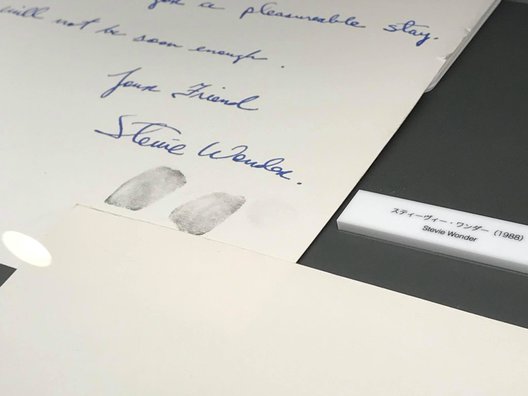 a pleasureable stay.
will not be soon enough.
Your Friend
Stevie Wonder.
スティーヴィー・ワンダー（1988）
Stevie Wonder